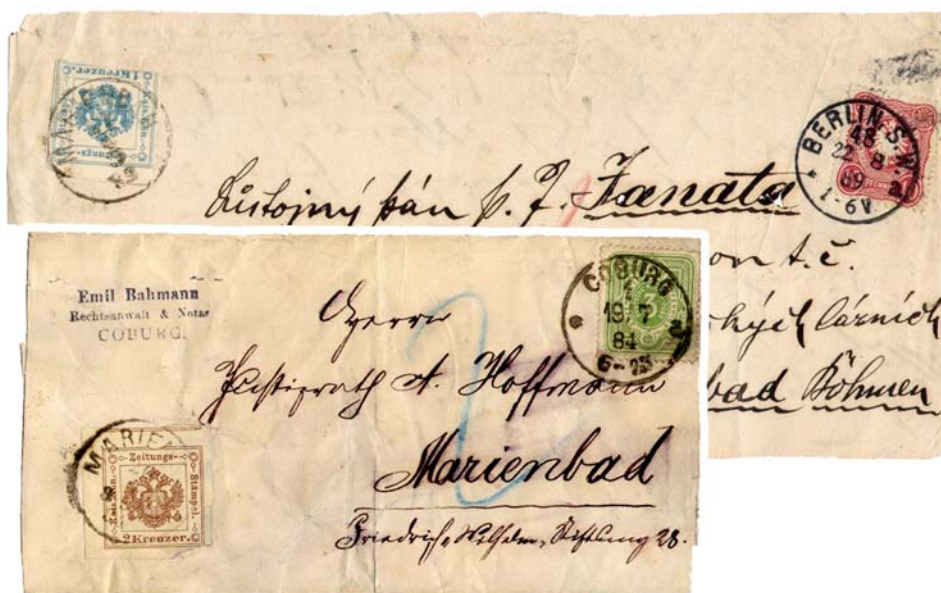 1 Kreuzer.
BERLIN S.W.
48
22 8
89
1-6 V.
PFENNIG
pán Zanata
t. č.
lázních
bad Böhmen
Emil Bahmann
Rechtsanwalt & Notar
COBURG.
COBURG
19 7
84
3
Herrn
Justizrath A. Hoffmann
Marienbad
Friedrich-Wilhelm-Stiftung 28.
2
MARIEN
Zeitungs-
Stämpel.
2 Kreuzer.